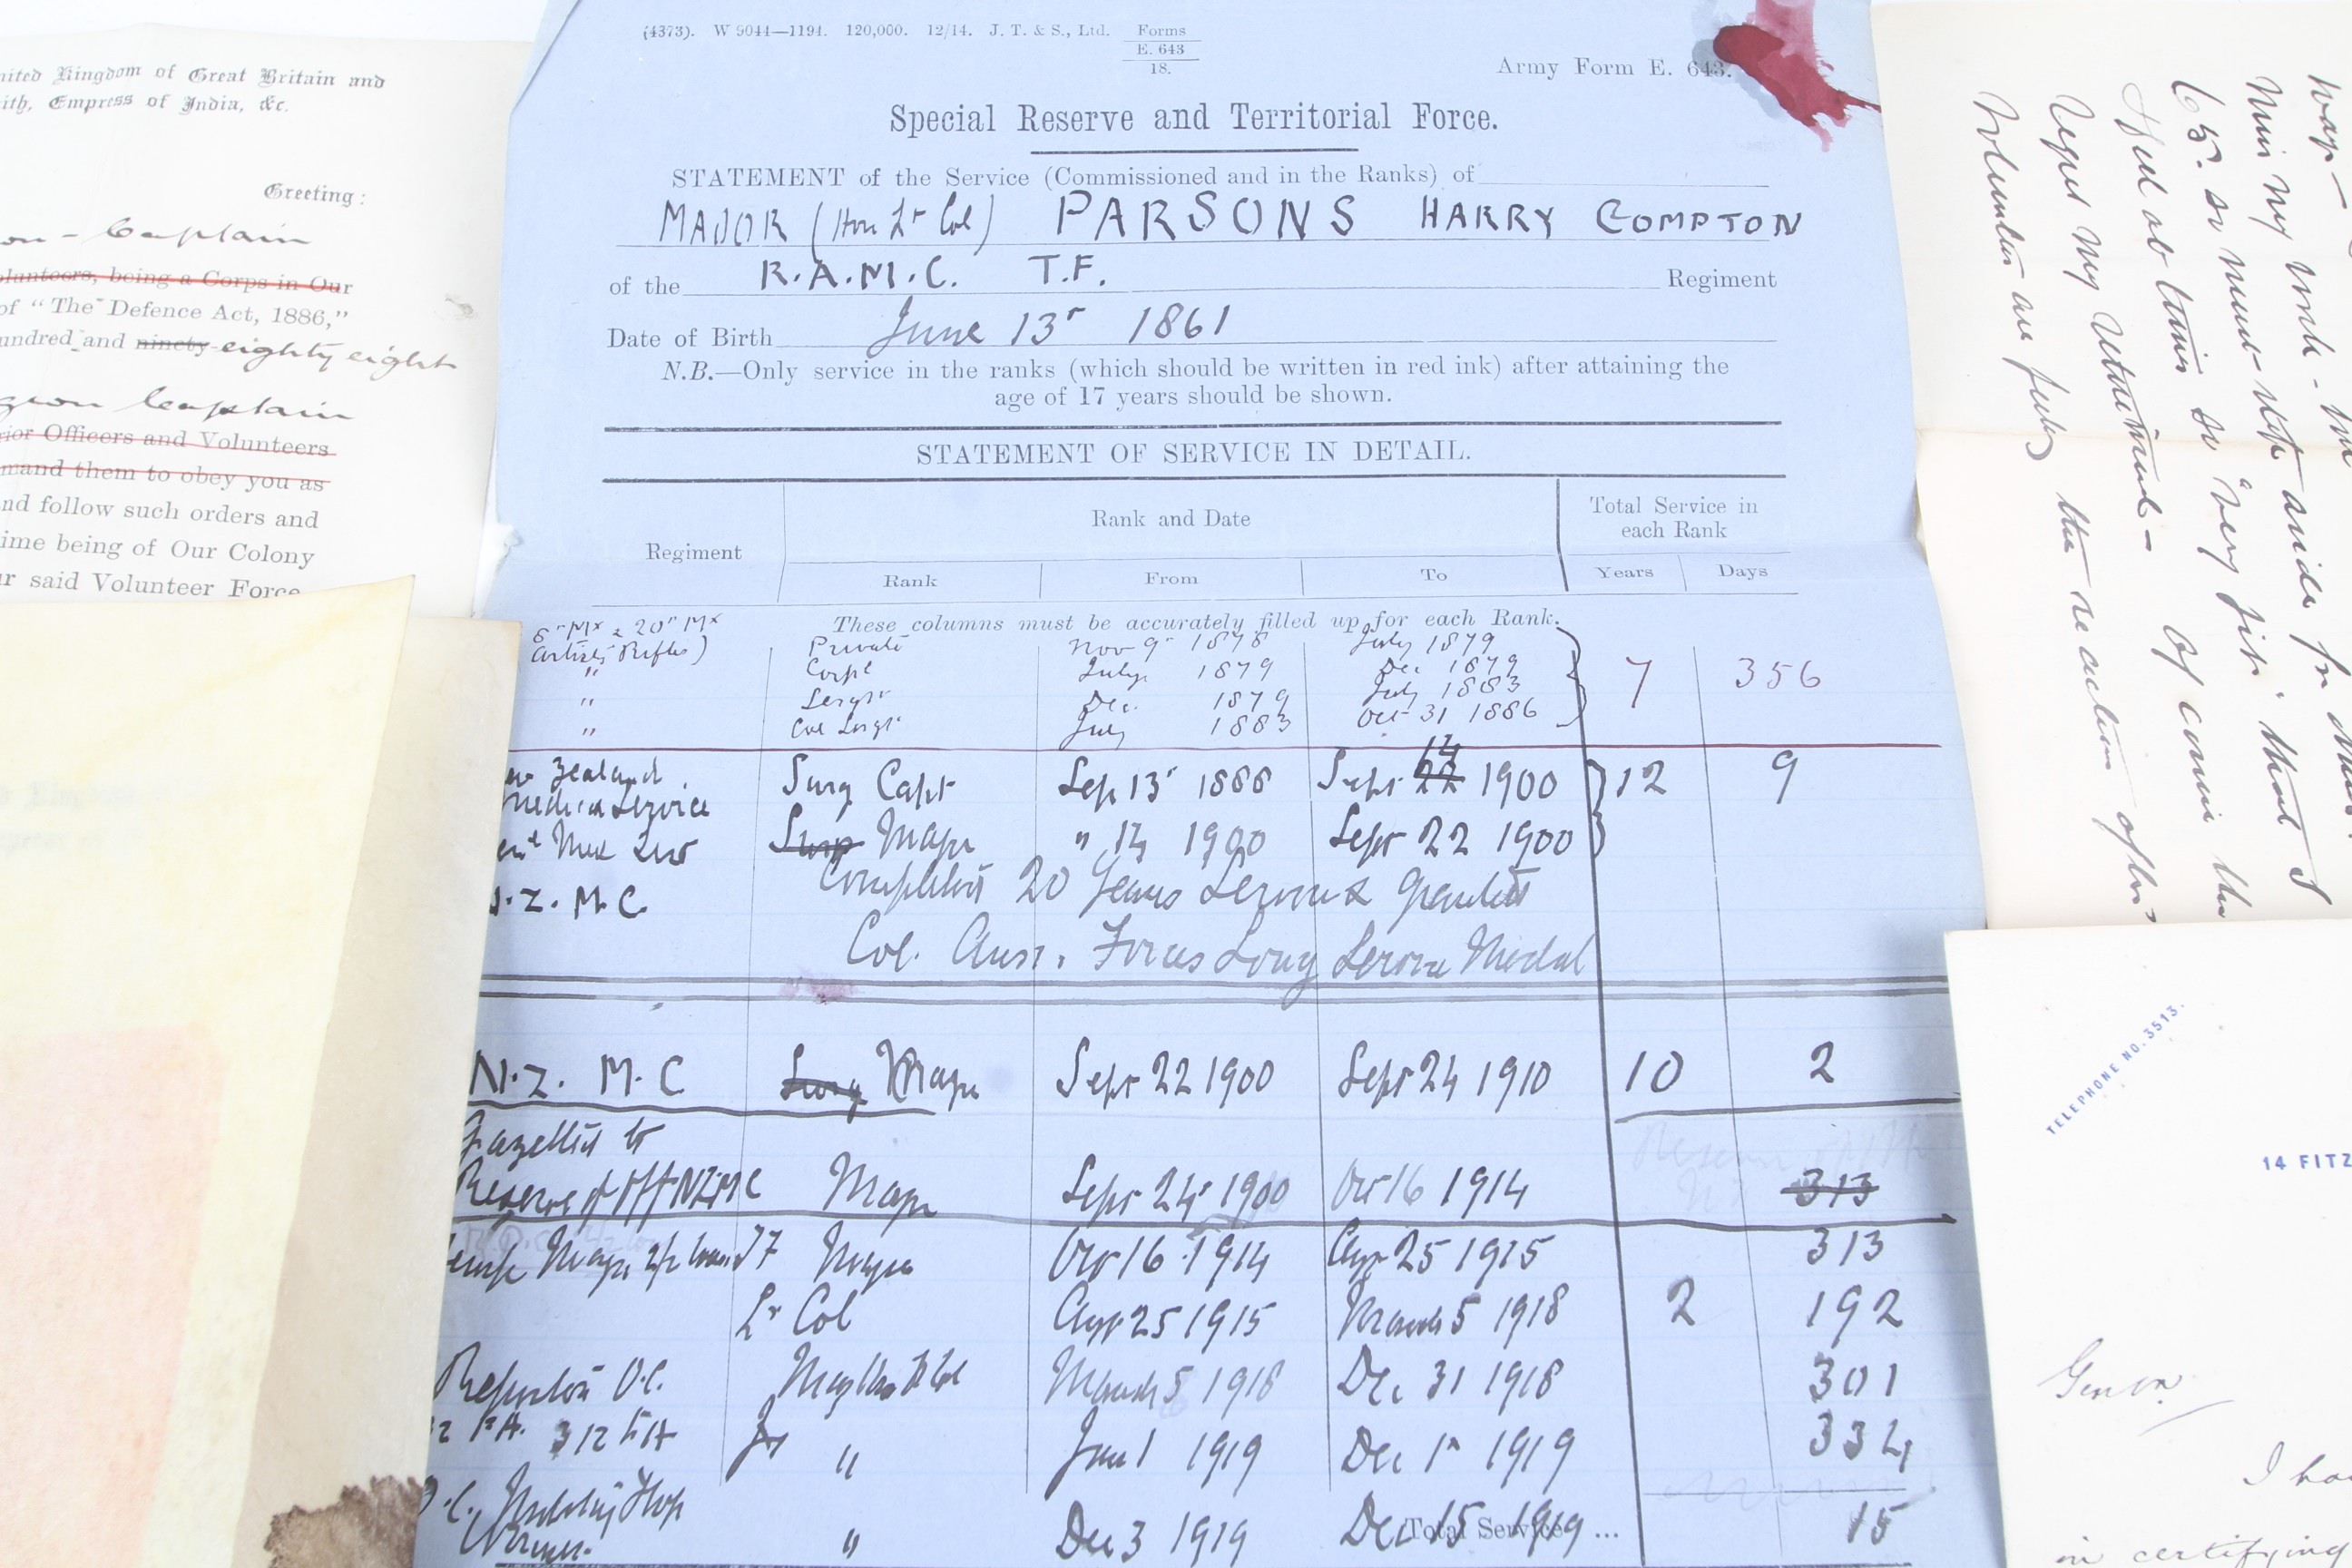 (4373). W 9044—1194. 120,000. 12/14. J. T. & S., Ltd. Forms
E. 643
18.
Army Form E. 643.
Special Reserve and Territorial Force.
STATEMENT of the Service (Commissioned and in the Ranks) of
MAJOR (Hon Lt Col) PARSONS HARRY COMPTON
of the R.A.M.C. T.F. Regiment
Date of Birth June 13th 1861
N.B.—Only service in the ranks (which should be written in red ink) after attaining the
age of 17 years should be shown.
STATEMENT OF SERVICE IN DETAIL.
Regiment Rank and Date Total Service in
each Rank
Rank From To Years Days
These columns must be accurately filled up for each Rank.
20th Mx
Artists Rifles) Private Nov 9th 1878 July 1879
" Corpl July 1879 Dec 1879 7 356
" Sergt Dec. 1879 July 1883
" Col Sergt July 1883 Oct 31 1886
Zealand Surg Capt Sep 13th 1888 Sept 14 22 1900 12 9
Medical Service
Surg Major " 14 1900 Sept 22 1900
Z. M. C. Completed 20 Years Service & Granted
Col. Aux. Forces Long Service Medal
N. Z. M. C Surg Major Sept 22 1900 Sept 24 1910 10 2
Gazetted to
Reserve of Off NZMC Major Sept 24th 1900 Oct 16 1914 313
Major Oct 16 1914 Aug 25 1915 313
Lt Col Aug 25 1915 March 5 1918 2 192
March 5 1918 Dec 31 1918 301
" Jan 1 1919 Dec 1st 1919 334
" Dec 3 1919 Dec 15 1919 15
Total Service ...
United Kingdom of Great Britain and
Faith, Empress of India, &c.
Greeting:
Captain
Volunteers, being a Corps in Our
of "The Defence Act, 1886,"
hundred and ninety eighty eight
Captain
Officers and Volunteers
them to obey you as
and follow such orders and
time being of Our Colony
said Volunteer Force
my work -
65. or aside for
I feel at times so "very fit" that I
regret my retirement - Of course the
Volunteers are feeling the reaction after
TELEPHONE NO. 3513.
14 FITZ
I
in certifying